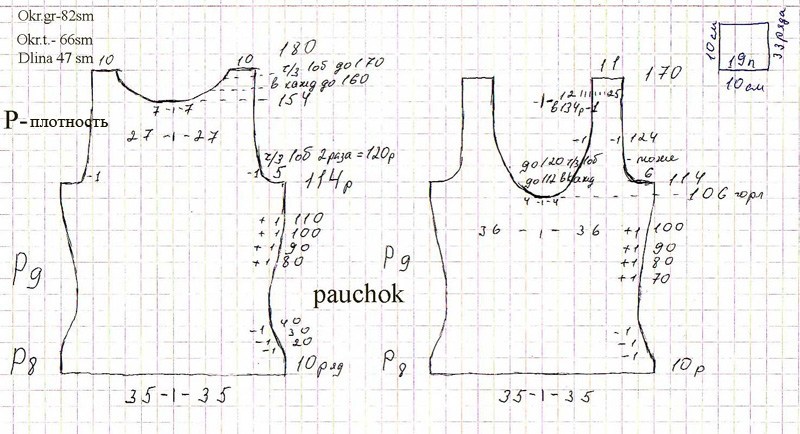 Okr.gr-82sm
Okr.t.- 66sm
Dlina 47 sm
10
10
180
ч/3 1об до 170
в кажд до 160
154
7 -1- 7
Р-плотность
27 -1- 27
ч/3 1об 2 раза = 120р
-1
-1
5
114р
+1 110
+1 100
+1 90
+1 80
Р9
40
-1 30
-1 20
-1
Р8
10 ряд
35-1-35
pauchok
11
170
-1-
12
25
в 134р-1
-1
-1
124
- тоже
6
до 120 ч/3 1об
до 112 в кажд
114
4 -1- 4
106 горл
36 - 1 - 36
+1 100
+1 90
+1 80
+1 70
Р9
-1
-1
-1
Р8
10р
35-1-35
10 см
33 ряда
19п
10 см